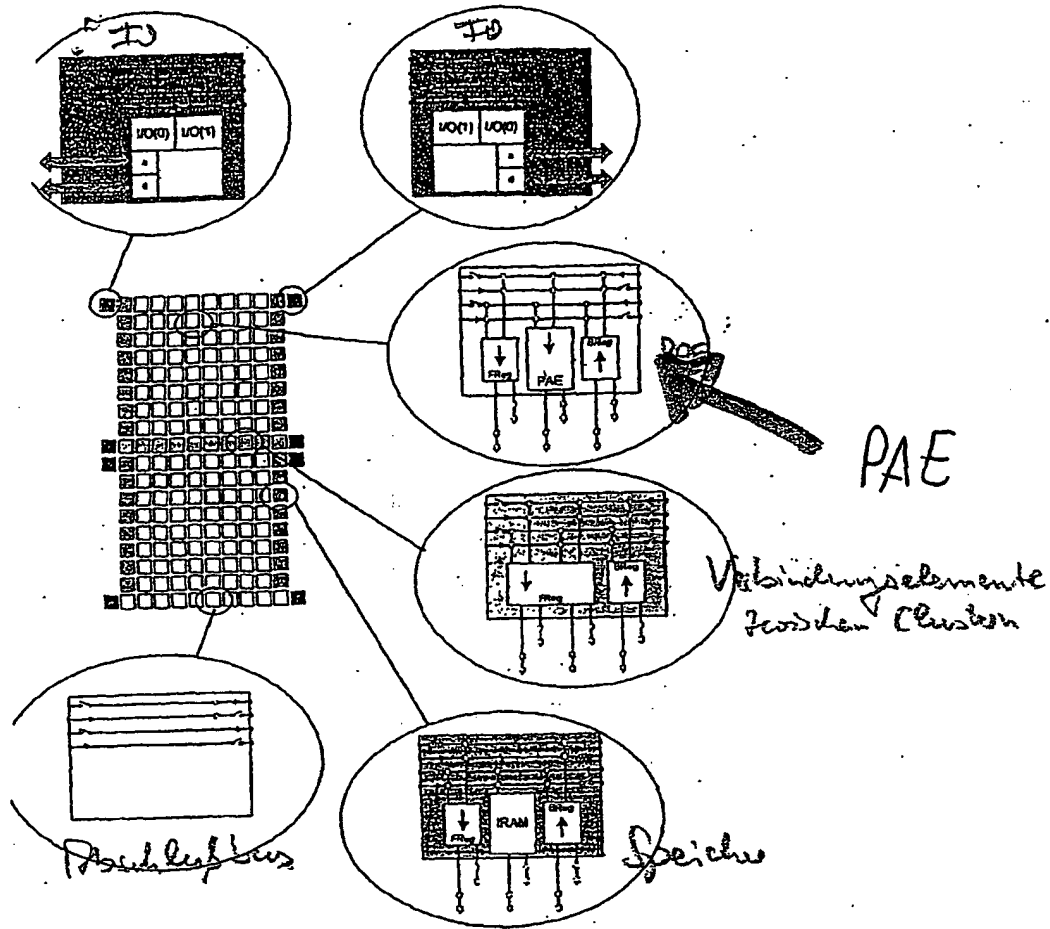 IO
IO
I/O(0) I/O(1)
a
d
I/O(1) I/O(0)
a
d
FReg
PAE
BReg
PAE
FReg
BReg
Verbindungselemente
zwischen Clustern
FReg
IRAM
BReg
Abschlußbus
Speicher